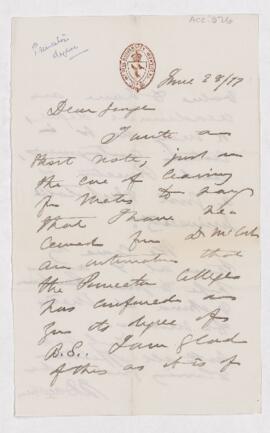 ACC. 526
Princeton
degree
June 28/77
Dear George
I write a
short note, just on
the eve of leaving
for to say
that I have re-
ceived from Dr McCosh
an intimation that
the Princeton College
has conferred on
you its degree of
I am glad
of this as it is of